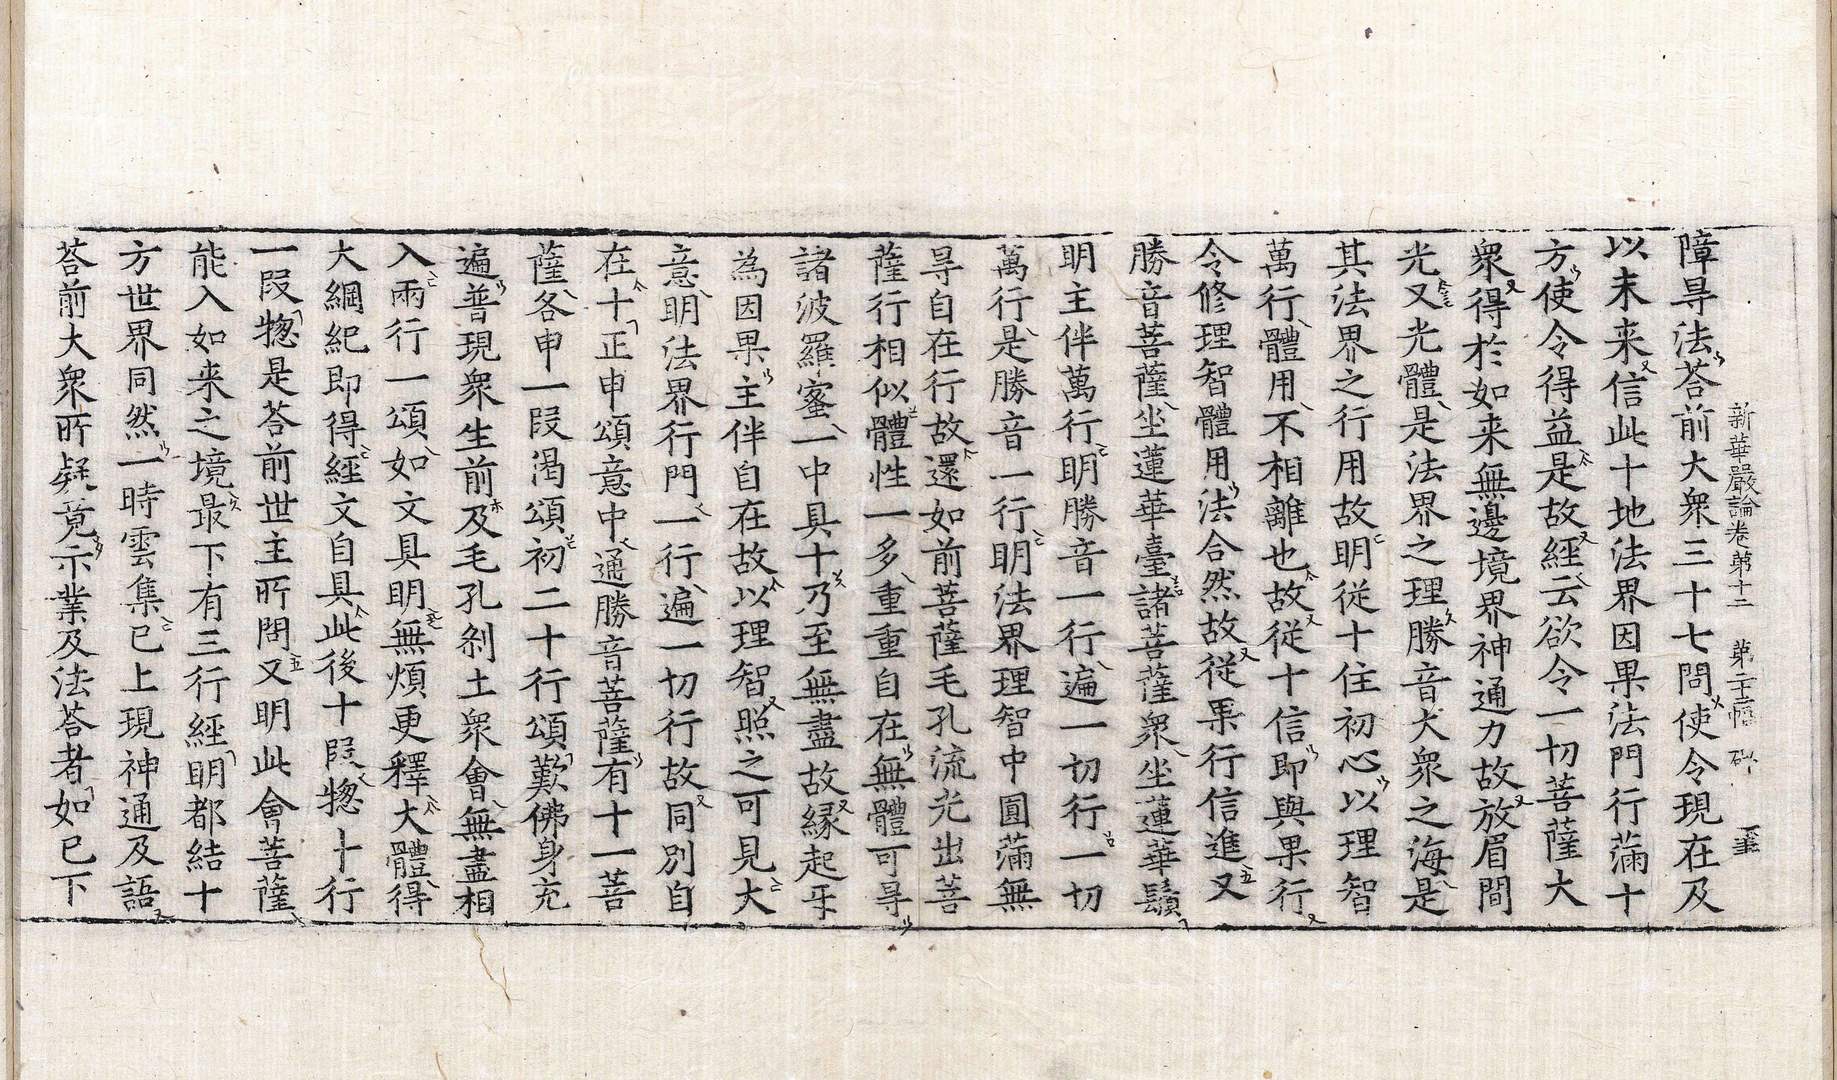 新華嚴論卷第十二 第二十二幅 砂
障㝵法荅前大衆三十七問使令現在及
以末来信此十地法界因果法門行滿十
方使令得益是故經云欲令一切菩薩大
衆得於如来無邊境界神通力故放眉間
光又光體是法界之理勝音大衆之海是
其法界之行用故明從十住初心以理智
萬行體用不相離也故從十信即與果行
令修理智體用法合然故從果行信進又
勝音菩薩坐蓮華臺諸菩薩衆坐蓮華鬚
明主伴萬行明勝音一行遍一切行一切
萬行是勝音一行明法界理智中圓滿無
㝵自在行故還如前菩薩毛孔流光出菩
薩行相似體性一多重重自在無體可㝵
諸波羅蜜一中具十乃至無盡故緣起牙
為因果主伴自在故以理智照之可見大
意明法界行門一行遍一切行故同別自
在十正申頌意中通勝音菩薩有十一菩
薩各申一段渴頌初二十行頌歎佛身充
遍普現衆生前及毛孔剎土衆會無盡相
入兩行一頌如文具明無煩更釋大體得
大綱紀即得經文自具此後十段惣十行
一段惣是荅前世主所問又明此會菩薩
能入如来之境最下有三行經明都結十
方世界同然一時雲集已上現神通及語
荅前大衆所疑竟示業及法荅者如已下